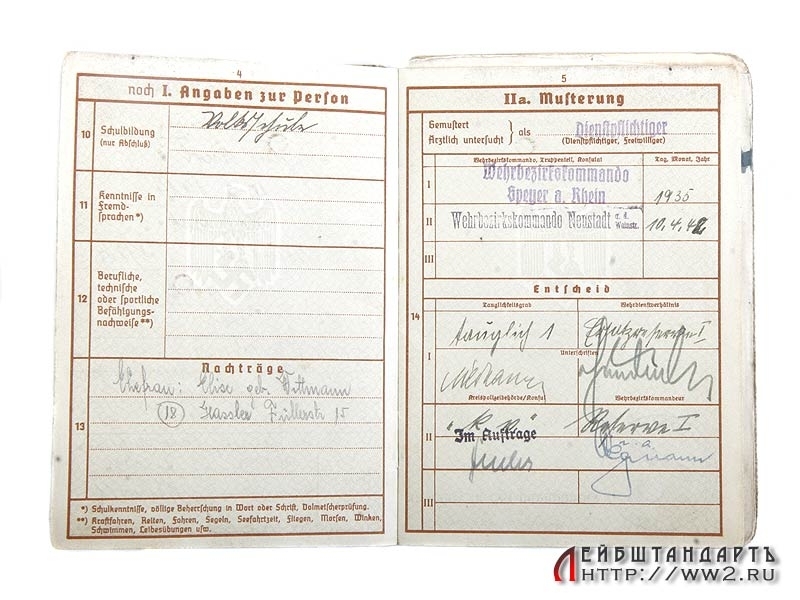 4
noch I. Angaben zur Person
10 Schulbildung
(nur Abschluß)
Volksschule
11 Kenntnisse in
Fremd-
sprachen*)
12 Berufliche,
technische
oder sportliche
Befähigungs-
nachweise**)
Nachträge
13
Ehefrau: Elise geb. Wittmann
(18) Hassloch Füllerstr 15
*) Schulkenntnisse, völlige Beherrschung in Wort oder Schrift, Dolmetscherprüfung.
**) Kraftfahren, Reiten, Fahren, Segeln, Seefahrtzeit, Fliegen, Morsen, Winken,
Schwimmen, Leibesübungen usw.
5
IIa. Musterung
Gemustert
Ärztlich untersucht } als Dienstpflichtiger
(Dienstpflichtiger, Freiwilliger)
Wehrbezirkskommando, Truppenteil, Konsulat
Tag, Monat, Jahr
I Wehrbezirkskommando
Speyer a. Rhein 1935
II Wehrbezirkskommando Neustadt a. d. Weinstr. 10.4.42
III
14
Entscheid
Tauglichkeitsgrad
Wehrdienstverhältnis
I tauglich 1 Ersatzreserve I
Unterschriften
Kreispolizeibehörde/Konsul
Wehrbezirkskommandeur
II "Im Auftrage Reserve I
III
ЛЕЙБШТАНДАРТЪ
HTTP://WW2.RU